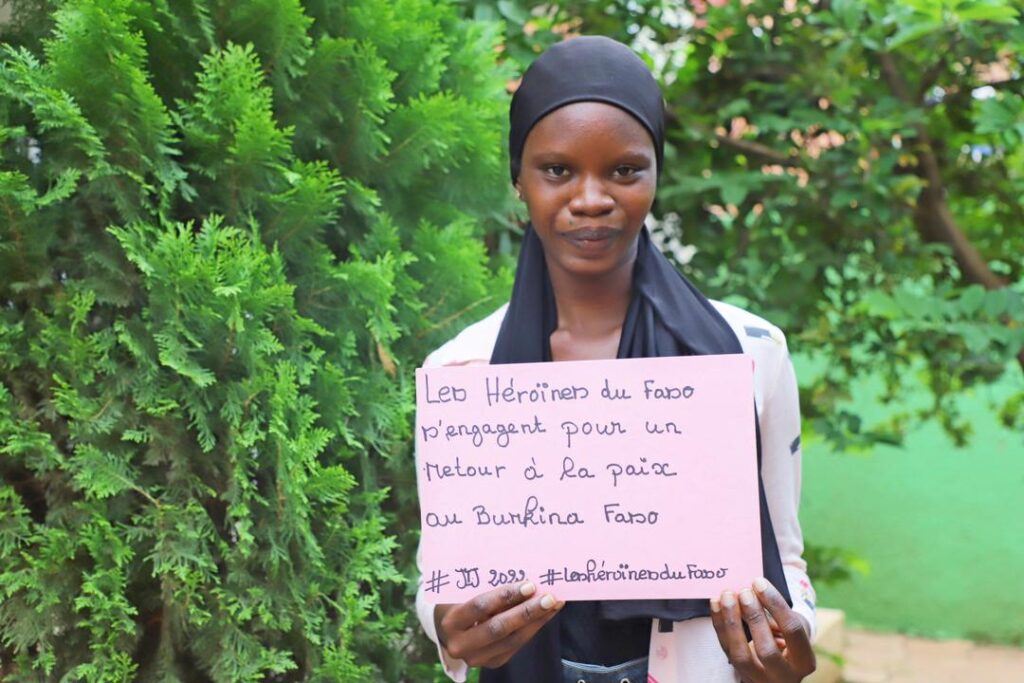 Les Héroïnes du Faso
s'engagent pour un
retour à la paix
au Burkina Faso
# JIJ 2022 #LeshéroïnesduFaso